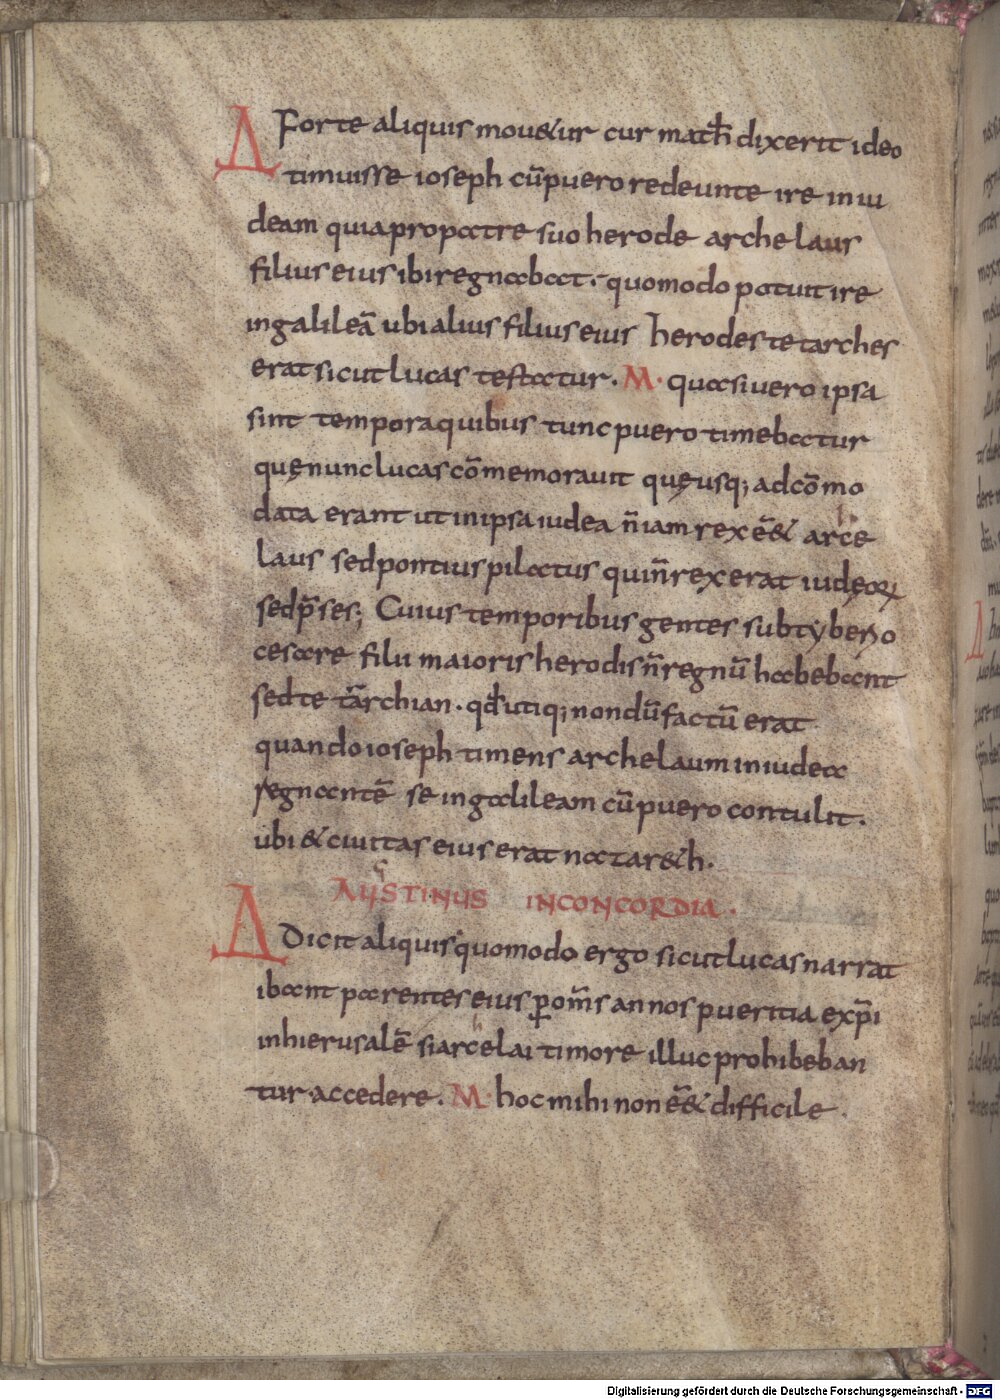 Δ Forte aliquis mou&ur cur math̄ dixerit ideo
timuisse ioseph cū puero redeunte ire in iu
deam quia pro patre suo herode archelaus
filius eius ibi regnabat· quomodo potuit ire
in galileā ubi alius filius eius herodes tetarches
erat sicut lucas testatur. M· quasi uero ipsa
sint tempora quibus tunc puero timebatur
quę nunc lucas cōmemorauit quę usq; adcōmo
data erant ut in ipsa iudea n̄ iam rex eēt& arce
laus sed pontius pilatus qui n̄ rex erat iudęoꝝ
sed p̄ses; Cuius temporibus gentes sub tyberio
cesare filii maioris herodis n̄ regnū habebant
sed te trārchian. qđ utiq; nondū factū erat
quando ioseph timens archelaum in iudea
regnantē se in galileam cū puero contulit.
ubi & ciuitas eius erat nazar&h.
AUGSTINUS IN CONCORDIA.
Δ Dicit aliquis quomodo ergo sicut lucas narrat
ibant parentes eius ꝑ om̄s annos pueritia exp̄i
in hierusalē si arcelai timore illuc prohibeban
tur accedere. M· hoc mihi non ē& difficile.
Digitalisierung gefördert durch die Deutsche Forschungsgemeinschaft - DFG